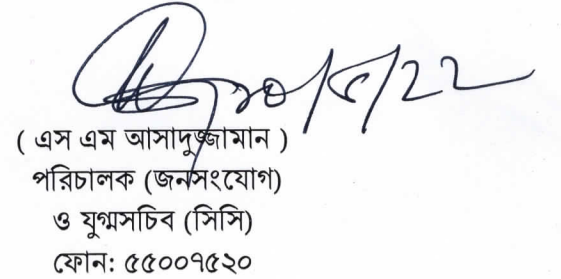 ২০/৫/২২
( এস এম আসাদুজ্জামান )
পরিচালক (জনসংযোগ)
ও যুগ্মসচিব (সিসি)
ফোন: ৫৫০০৭৫২০